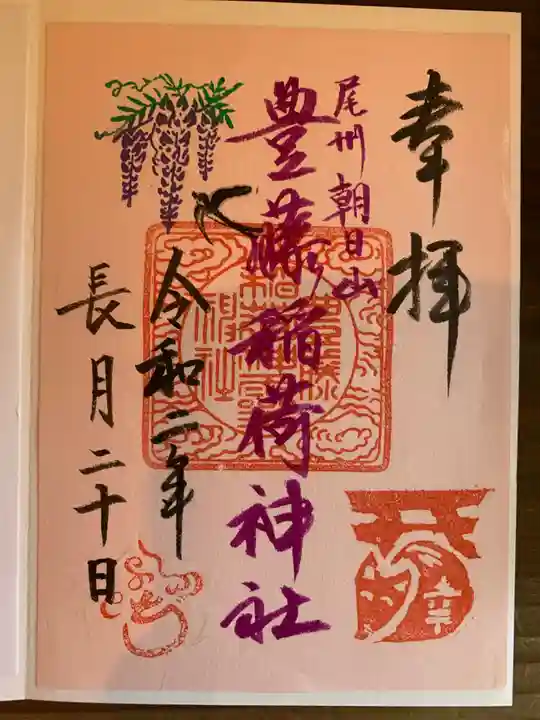 奉拝
尾州朝日山
豊藤稲荷神社
令和二年
長月二十日